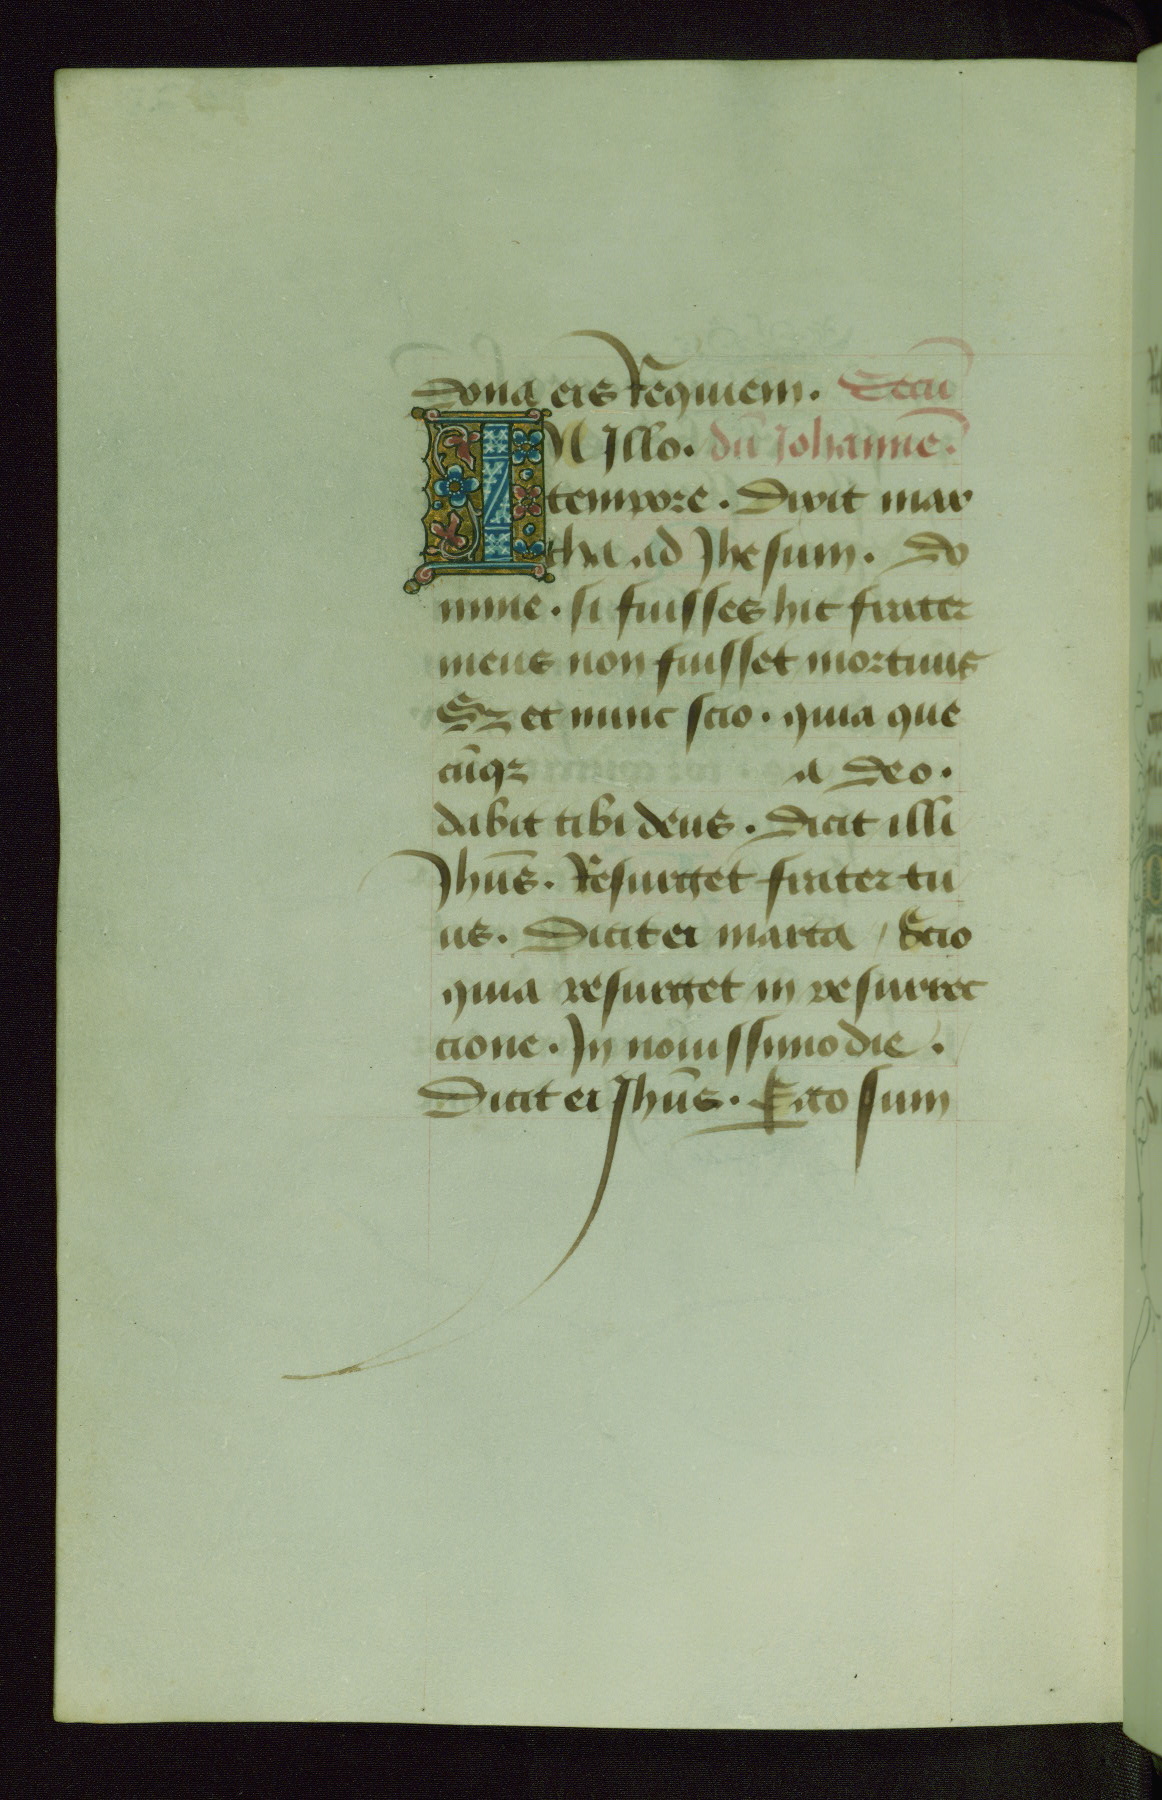 dona eis Requiem. Secū
IN Illo. dū Johannē.
tempore. Dixit mar
tha ad Jhesum. Do
mine. si fuisses hic frater
meus non fuisset mortuus
Sz et nunc scio. quia que
cūqz a deo.
dabit tibi deus. Dicit illi
Jhūs. Resurget frater tu
us. Dicit ei marta / Scio
quia resurget in resurrec
cione. In nouissimo die.
Dicit ei Jhūs. Ego sum